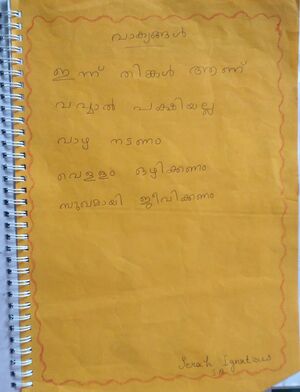 വാക്യങ്ങൾ
ഇന്ന് തിങ്കൾ ആണ്
വവ്വാൽ പക്ഷിയല്ല
വാഴ നടണം
വെള്ളം ഒഴിക്കണം
സുഖമായി ജീവിക്കണം
Serah Ignatius